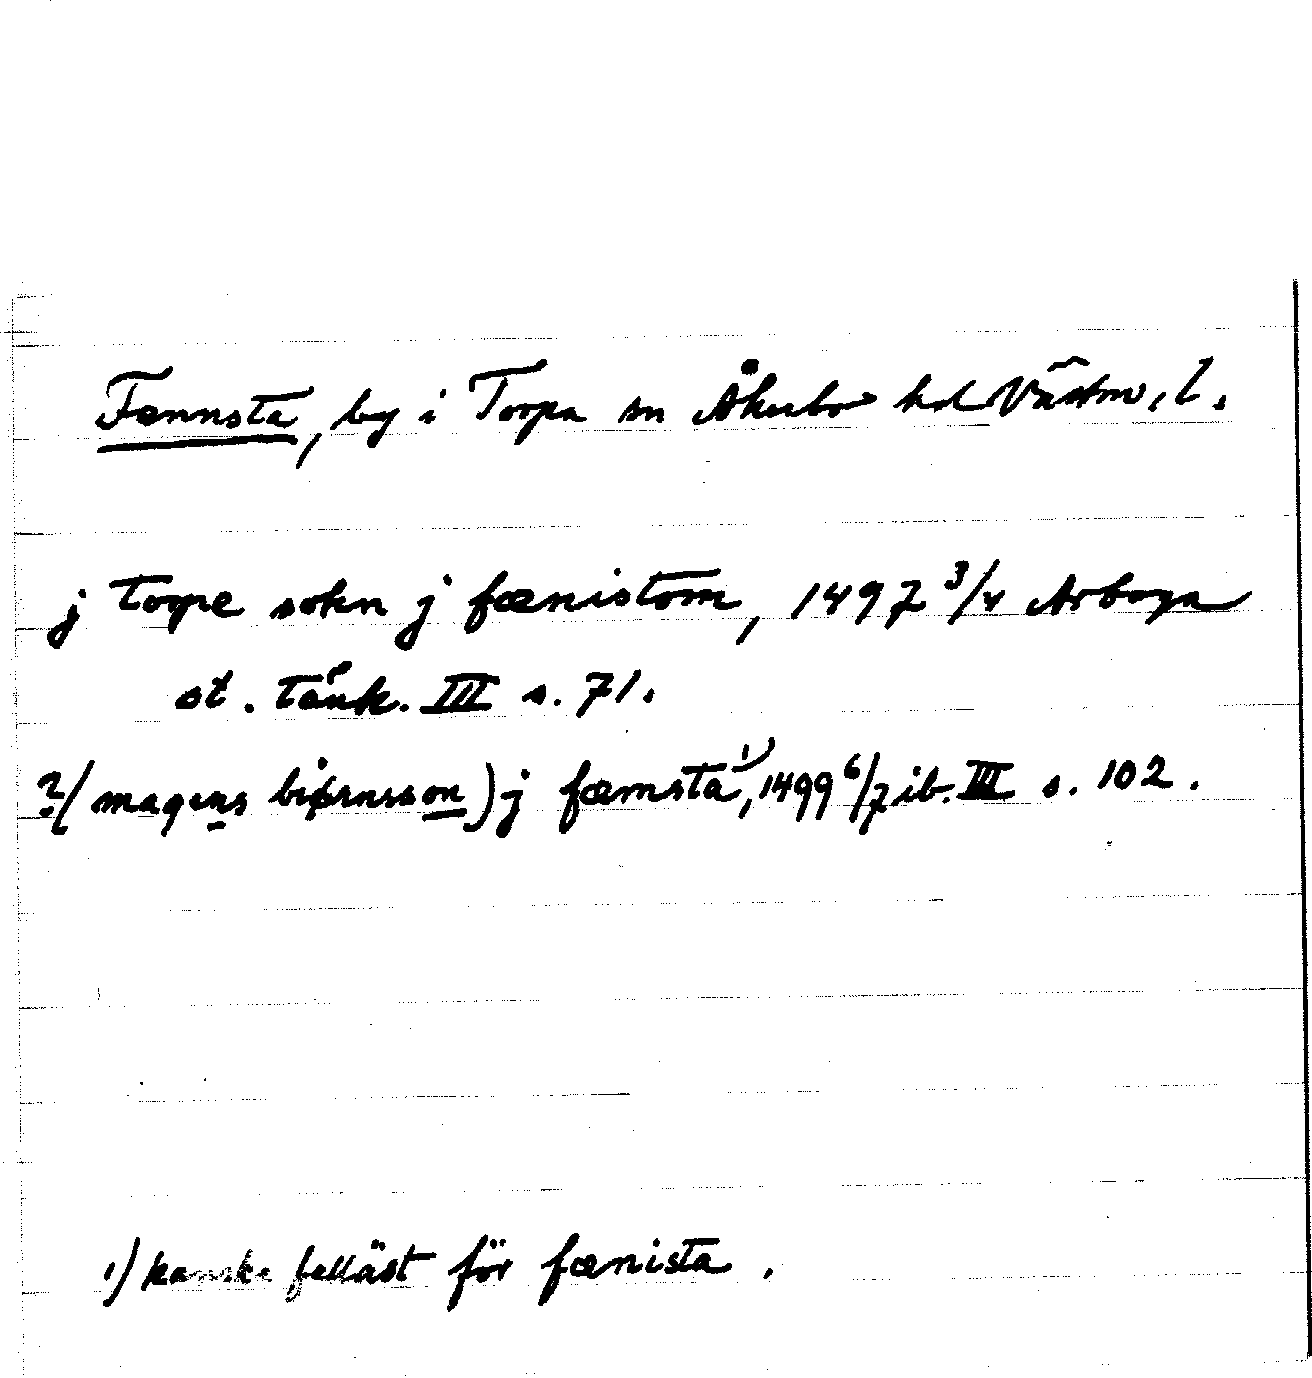 Fænnsta, by i Torpa sn Åkerbo hd Västm. l.
j torpe sokn j fænistom, 1497 3/4 Arboga
st. tänk. III s. 71.
?/(magens biørnsson) j fæmsta 1), 1499 6/7 ib. III s. 102.
1) kanske felläst för fænista.